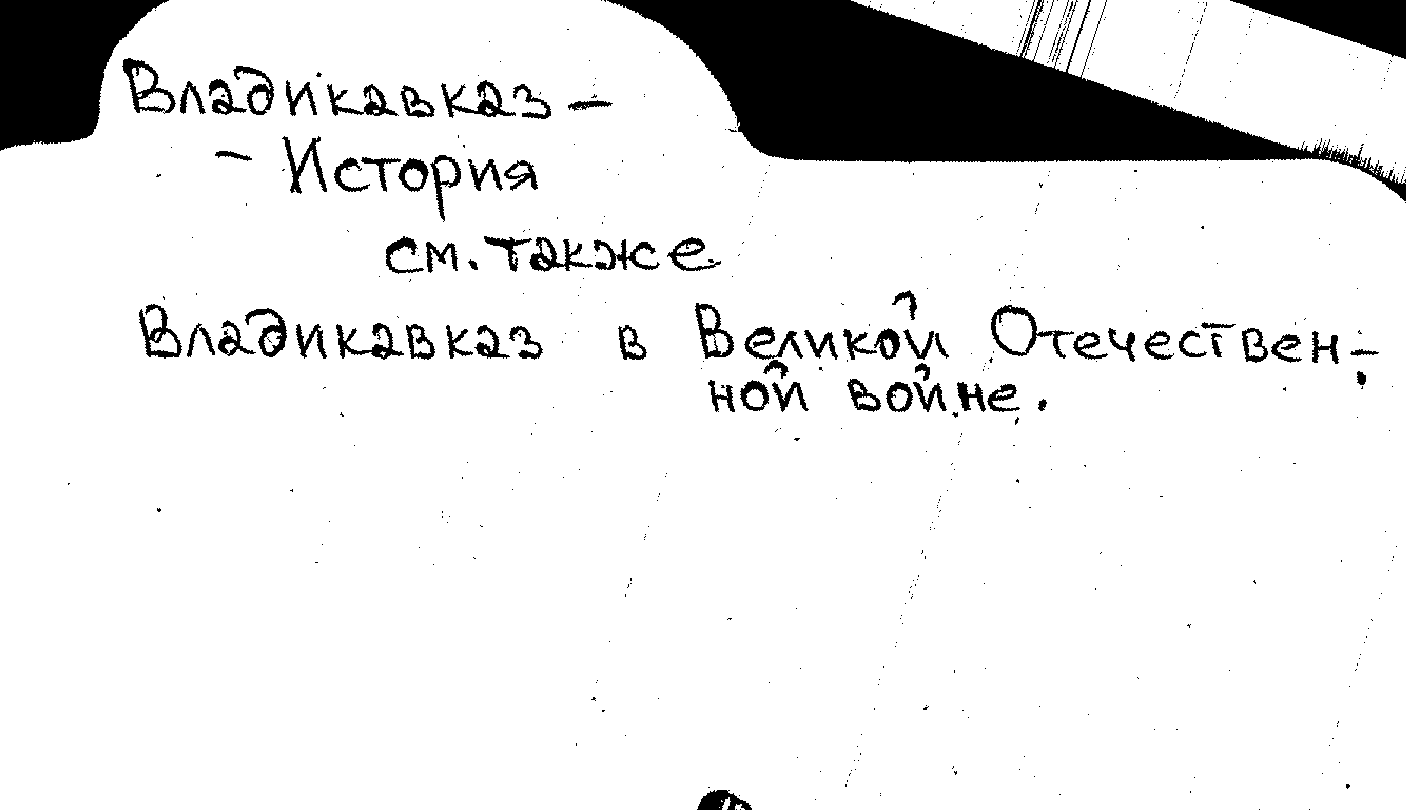 Владикавказ –
– История
см. также
Владикавказ в Великой Отечествен-
ной войне.